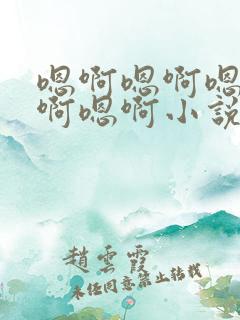 嗯啊嗯啊嗯
啊嗯啊小說
趙雲霞
未經同意禁止轉載